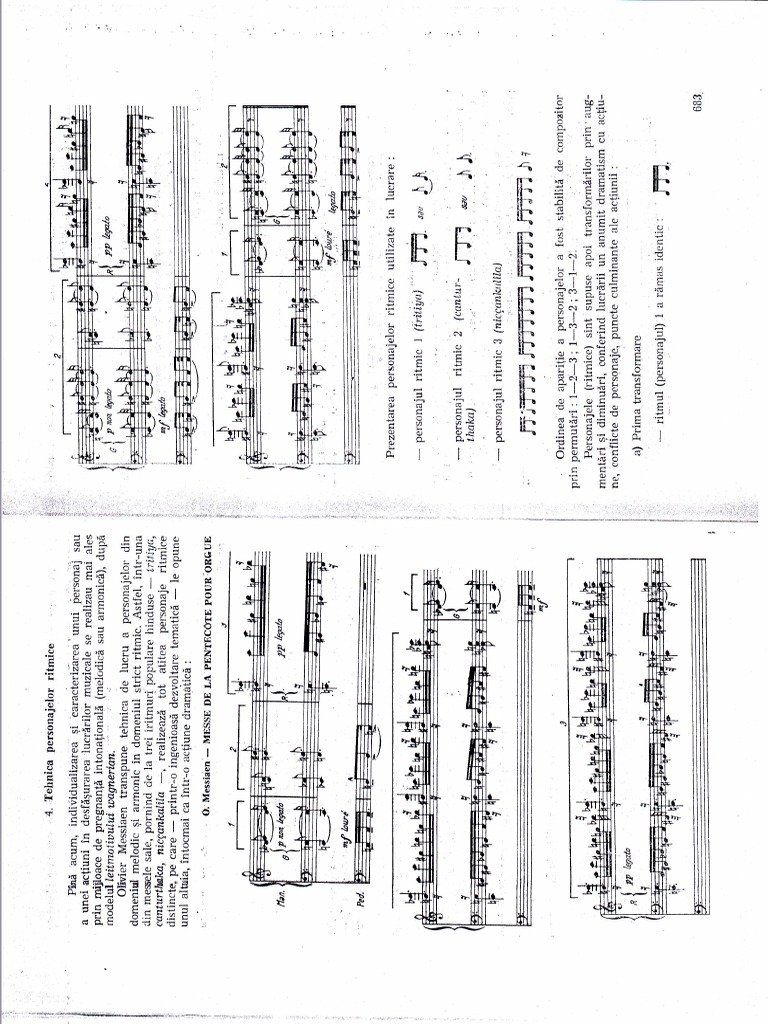 4. Tehnica personajelor ritmice
Pînă acum, individualizarea și caracterizarea unui personaj sau
a unei acțiuni în desfășurarea lucrărilor muzicale se realizau mai ales
prin mijloace de pregnanță intonațională (melodică sau armonică), după
modelul leitmotivului wagnerian.
Olivier Messiaen transpune tehnica de lucru a personajelor din
domeniul melodic și armonic în domeniul strict ritmic. Astfel, într-una
din messele sale, pornind de la trei iritmuri populare hinduse — tritiya,
canturthaka, niççankalila —, realizează tot atîtea personaje ritmice
distincte, pe care — printr-o ingenioasă dezvoltare tematică — le opune
unul altuia, întocmai ca într-o acțiune dramatică :
O. Messiaen — MESSE DE LA PENTECÔTE POUR ORGUE
1
2
3
Man.
G
p non legato
R
pp legato
Ped.
mf louré
1
G
mf
3
R
pp legato
2
G
p non legato
R
pp legato
mf legato
1
2
G
mf louré
legato
Prezentarea personajelor ritmice utilizate în lucrare :
— personajul ritmic 1 (tritiya)
sau
— personajul ritmic 2 (cantur-
thaka)
sau
— personajul ritmic 3 (niççankalila)
Ordinea de apariție a personajelor a fost stabilită de compozitor
prin permutări : 1—2—3 ; 1—3—2 ; 3—1—2.
Personajele (ritmice) sînt supuse apoi transformărilor prin aug-
mentări și diminuări, conferind lucrării un anumit dramatism cu acțiu-
ne, conflicte de personaje, puncte culminante ale acțiunii :
a) Prima transformare
— ritmul (personajul) 1 a rămas identic :
683